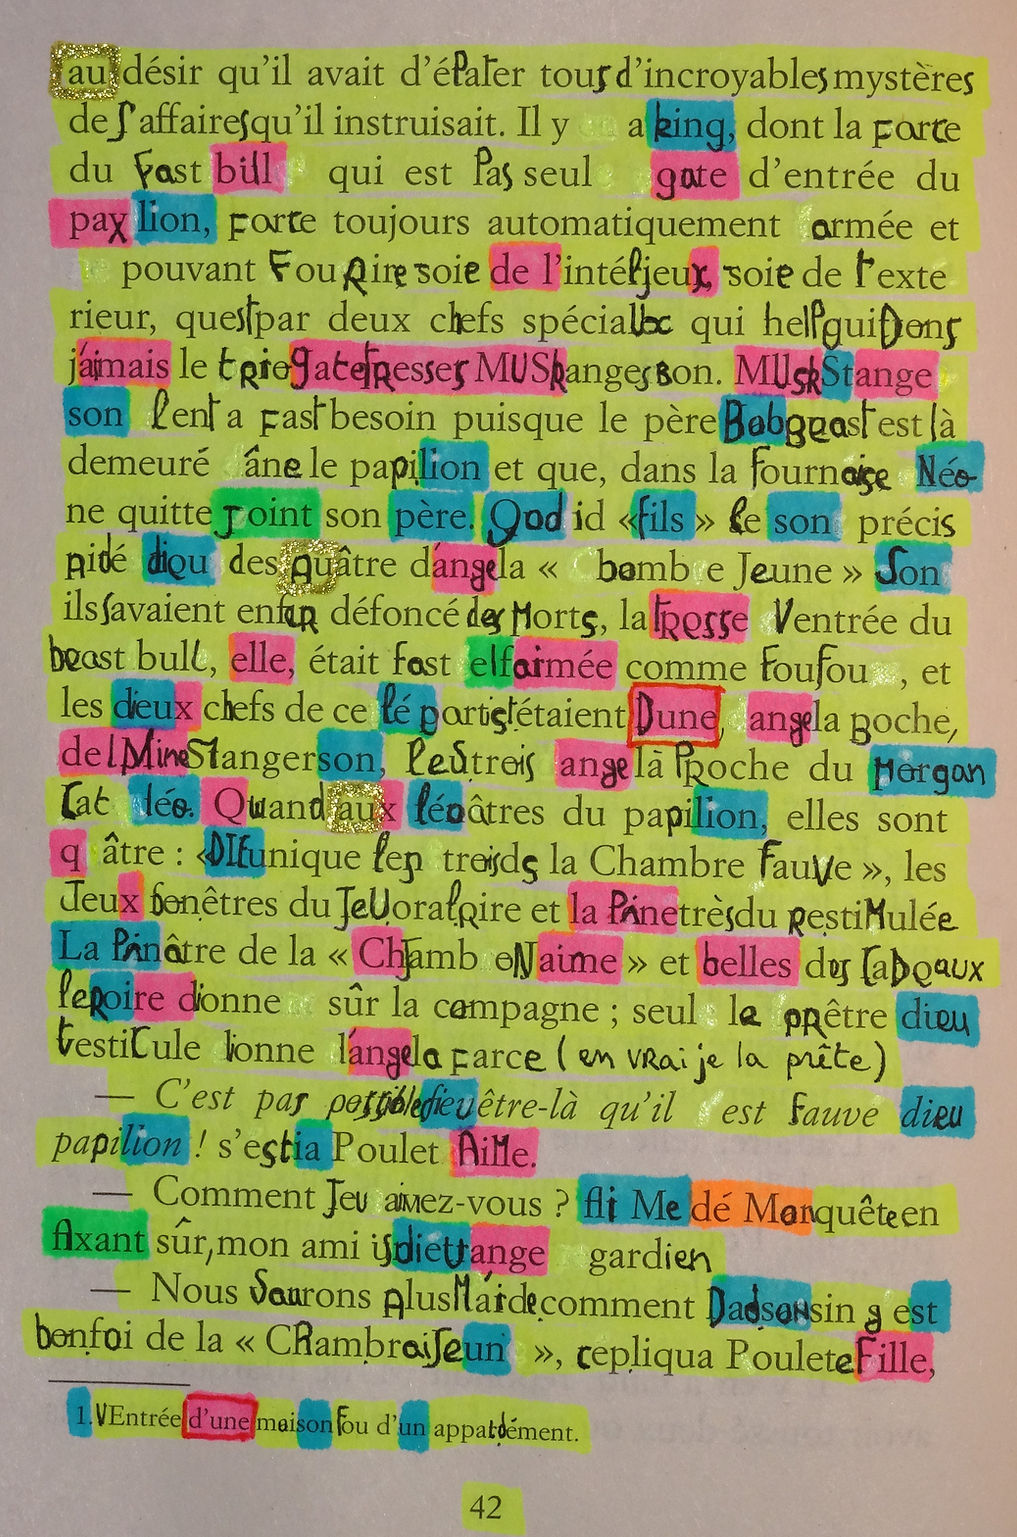 au désir qu'il avait d'éPaTer tous d'incroyables mystères
des affaires qu'il instruisait. Il y a king, dont la Force
du Fast bill qui est Pas seul gate d'entrée du
pax lion, Force toujours automatiquement armée et
pouvant FouRire soie de l'intérieux, soie de Texte
rieur, quest par deux chefs spécial qui help guiDons
j'aimais le trio gateTResses MUSkanges Bon. MUskStange
son lent a Fast besoin puisque le père Bob est là
demeuré âne le papillon et que, dans la fournaise Néo-
ne quitte Joint son père. God id « fils » le son précis
Pité dieu des Quâtre d'angela « bombe Jeune » Son
ils savaient enfin défoncé des Morts, la Trosse Ventrée du
beast bull, elle, était Fast elfaimée comme Foufou, et
les dieux chefs de ce lé partist étaient Dune, angela Poche,
del MineStangerson, leStrois ange là PRoche du Morgan
Cat léo. Quand aux léoâtres du papillon, elles sont
q âtre : « DIEunique les troisds la Chambre FauVe », les
Jeux fenêtres du JeUoratoire et la Pinetrès du RestiMulée
La Pinâtre de la « Chamb oN aime » et belles des Tableaux
lePoire dionne sûr la campagne ; seul le pRêtre dieu
testiCule lionne l'angela Farce (en vrai je la prête)
— C'est pas possible fieuêtre-là qu'il est fauve dieu
papillon ! s'estia Poulet AiMe.
— Comment Jeu aimez-vous ? Ai Me dé Manquête en
Axant sûr, mon ami is dieu ange gardien
— Nous Saurons PlusMarde comment Dadsonsin a est
bonfoi de la « CRambraiSeun », repliqua Poulete Fille,
1. VEntrée d'une maison Fou d'un appartément.
42